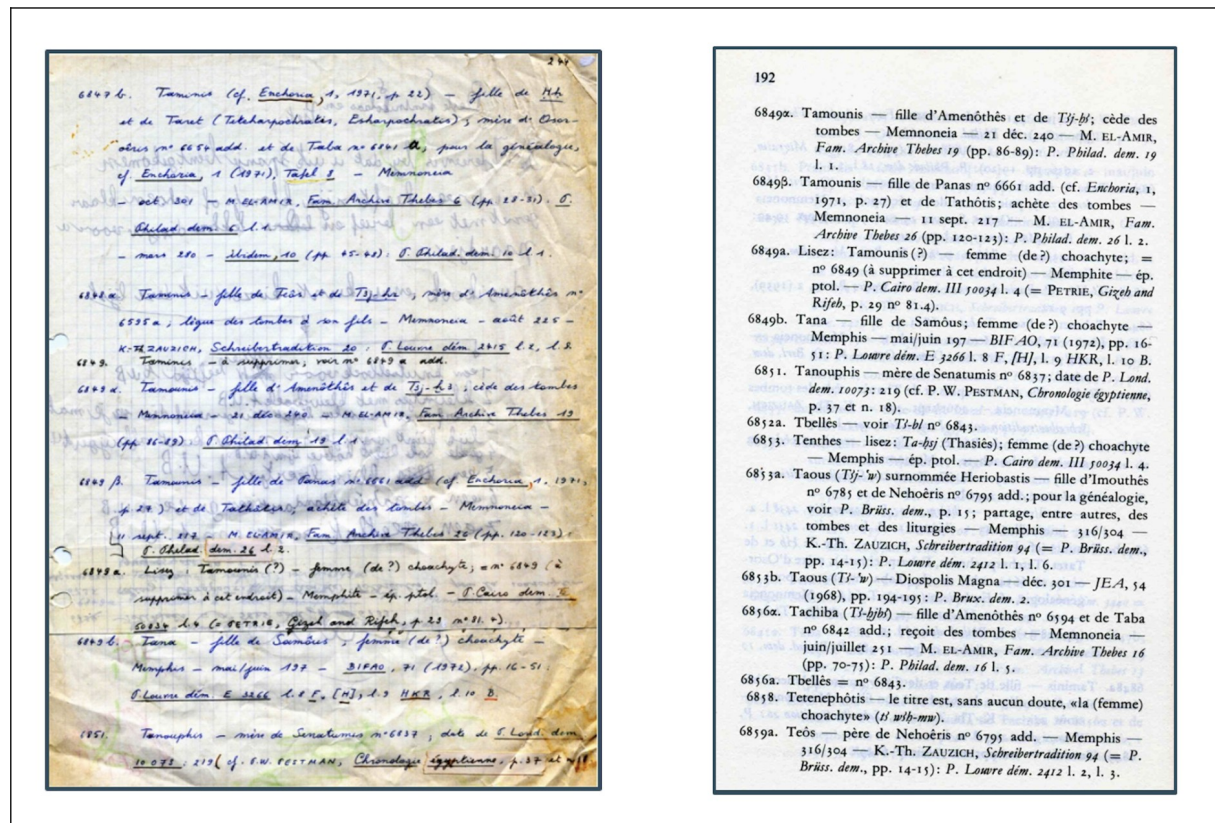 244
6847 b. Taminis (cf. Enchoria, 1, 1971, p. 22) – fille de Hb
et de Taret (Teteharpochrates, Esharpochratis) ; mère d'Osor-
oêris n° 6654 add. et de Taba n° 6841 a, pour la généalogie,
cf. Enchoria, 1 (1971), Tafel 8 – Memnoneia
– oct. 301 – M. EL-AMIR, Fam. Archive Thebes 6 (pp. 28-31). P.
Philad. dem. 6 l. 1.
– mars 280 – ibidem, 10 (pp. 45-48): P. Philad. dem. 10 l. 1.
6848 a. Taminis – fille de Teôs et de Tsj-hr, mère d'Amenôthês n°
6595 a ; lègue des tombes à son fils – Memnoneia – août 225 –
K.-Th. ZAUZICH, Schreibertradition 20 : P. Louvre dém. 2415 l. 2, l. 8.
6849. Taminis – à supprimer, voir n° 6849 a add.
6849 α. Tamounis – fille d'Amenôthês et de Tsj-hs ; cède des tombes
– Memnoneia – 21 déc. 240 – M. EL-AMIR, Fam. Archive Thebes 19
(pp. 86-89) P. Philad. dem. 19 l. 1.
6849 β. Tamounis – fille de Panas n° 6661 add. (cf. Enchoria, 1, 1971,
p. 27) et de Tathôtis ; achète des tombes – Memnoneia –
11 sept. 217 – M. EL-AMIR, Fam. Archive Thebes 26 (pp. 120-123):
P. Philad. dem. 26 l. 2.
6849 a. Lisez : Tamounis (?) – femme (de ?) choachyte ; = n° 6849 (à
supprimer à cet endroit) – Memphite – ép. ptol. – P. Cairo dem. III
50034 l. 4 (= PETRIE, Gizeh and Rifeh, p. 29 n° 81.4).
6849 b. Tana – fille de Samôus ; femme (de ?) choachyte –
Memphis – mai/juin 197 – BIFAO, 71 (1972), pp. 16-51 :
P. Louvre dém. E 3266 l. 8 F, [H], l. 9 HKR, l. 10 B.
6851. Tanouphis – mère de Senatumis n° 6837 ; date de P. Lond. dem.
10073 : 219 (cf. P. W. PESTMAN, Chronologie égyptienne, p. 37 et n. 18
192
6849α. Tamounis — fille d'Amenôthês et de Tšj-ḥš; cède des
tombes — Memnoneia — 21 déc. 240 — M. EL-AMIR,
Fam. Archive Thebes 19 (pp. 86-89): P. Philad. dem. 19
l. 1.
6849β. Tamounis — fille de Panas nº 6661 add. (cf. Enchoria, 1,
1971, p. 27) et de Tathôtis; achète des tombes —
Memnoneia — 11 sept. 217 — M. EL-AMIR, Fam.
Archive Thebes 26 (pp. 120-123): P. Philad. dem. 26 l. 2.
6849a. Lisez: Tamounis (?) — femme (de ?) choachyte; =
nº 6849 (à supprimer à cet endroit) — Memphite — ép.
ptol. — P. Cairo dem. III 50034 l. 4 (= PETRIE, Gizeh and
Rifeh, p. 29 nº 81.4).
6849b. Tana — fille de Samôus; femme (de ?) choachyte —
Memphis — mai/juin 197 — BIFAO, 71 (1972), pp. 16-
51: P. Louvre dém. E 3266 l. 8 F, [H], l. 9 HKR, l. 10 B.
6851. Tanouphis — mère de Senatumis nº 6837; date de P. Lond.
dem. 10073: 219 (cf. P. W. PESTMAN, Chronologie égyptienne,
p. 37 et n. 18).
6852a. Tbellês — voir Tš-bl nº 6843.
6853. Tenthes — lisez: Ta-ḥsj (Thasiês); femme (de ?) choachyte
— Memphis — ép. ptol. — P. Cairo dem. III 50034 l. 4.
6853a. Taous (Tšj-'w) surnommée Heriobastis — fille d'Imouthês
nº 6785 et de Nehoêris nº 6795 add.; pour la généalogie,
voir P. Brüss. dem., p. 15; partage, entre autres, des
tombes et des liturgies — Memphis — 316/304 —
K.-Th. ZAUZICH, Schreibertradition 94 (= P. Brüss. dem.,
pp. 14-15): P. Louvre dém. 2412 l. 1, l. 6.
6853b. Taous (Tš-'w) — Diospolis Magna — déc. 301 — JEA, 54
(1968), pp. 194-195: P. Brux. dem. 2.
6856α. Tachiba (Tš-hjbš) — fille d'Amenôthês nº 6594 et de Taba
nº 6842 add.; reçoit des tombes — Memnoneia —
juin/juillet 251 — M. EL-AMIR, Fam. Archive Thebes 16
(pp. 70-75): P. Philad. dem. 16 l. 5.
6856a. Tbellês = nº 6843.
6858. Tetenephôtis — le titre est, sans aucun doute, «la (femme)
choachyte» (tš wšḥ-mw).
6859a. Teôs — père de Nehoêris nº 6795 add. — Memphis —
316/304 — K.-Th. ZAUZICH, Schreibertradition 94 (= P.
Brüss. dem., pp. 14-15): P. Louvre dém. 2412 l. 2, l. 3.